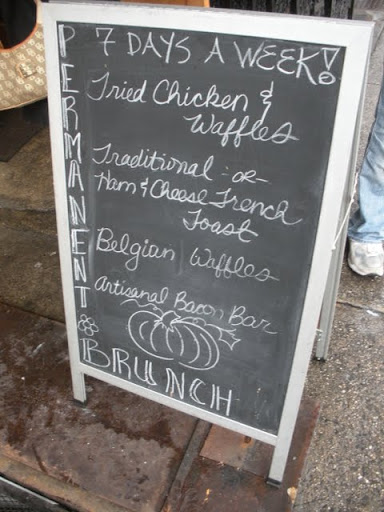 PERMANENT
7 DAYS A WEEK!
Fried Chicken &
Waffles
Traditional -OR-
Ham & Cheese French
Toast
Belgian Waffles
Artisanal Bacon Bar
BRUNCH